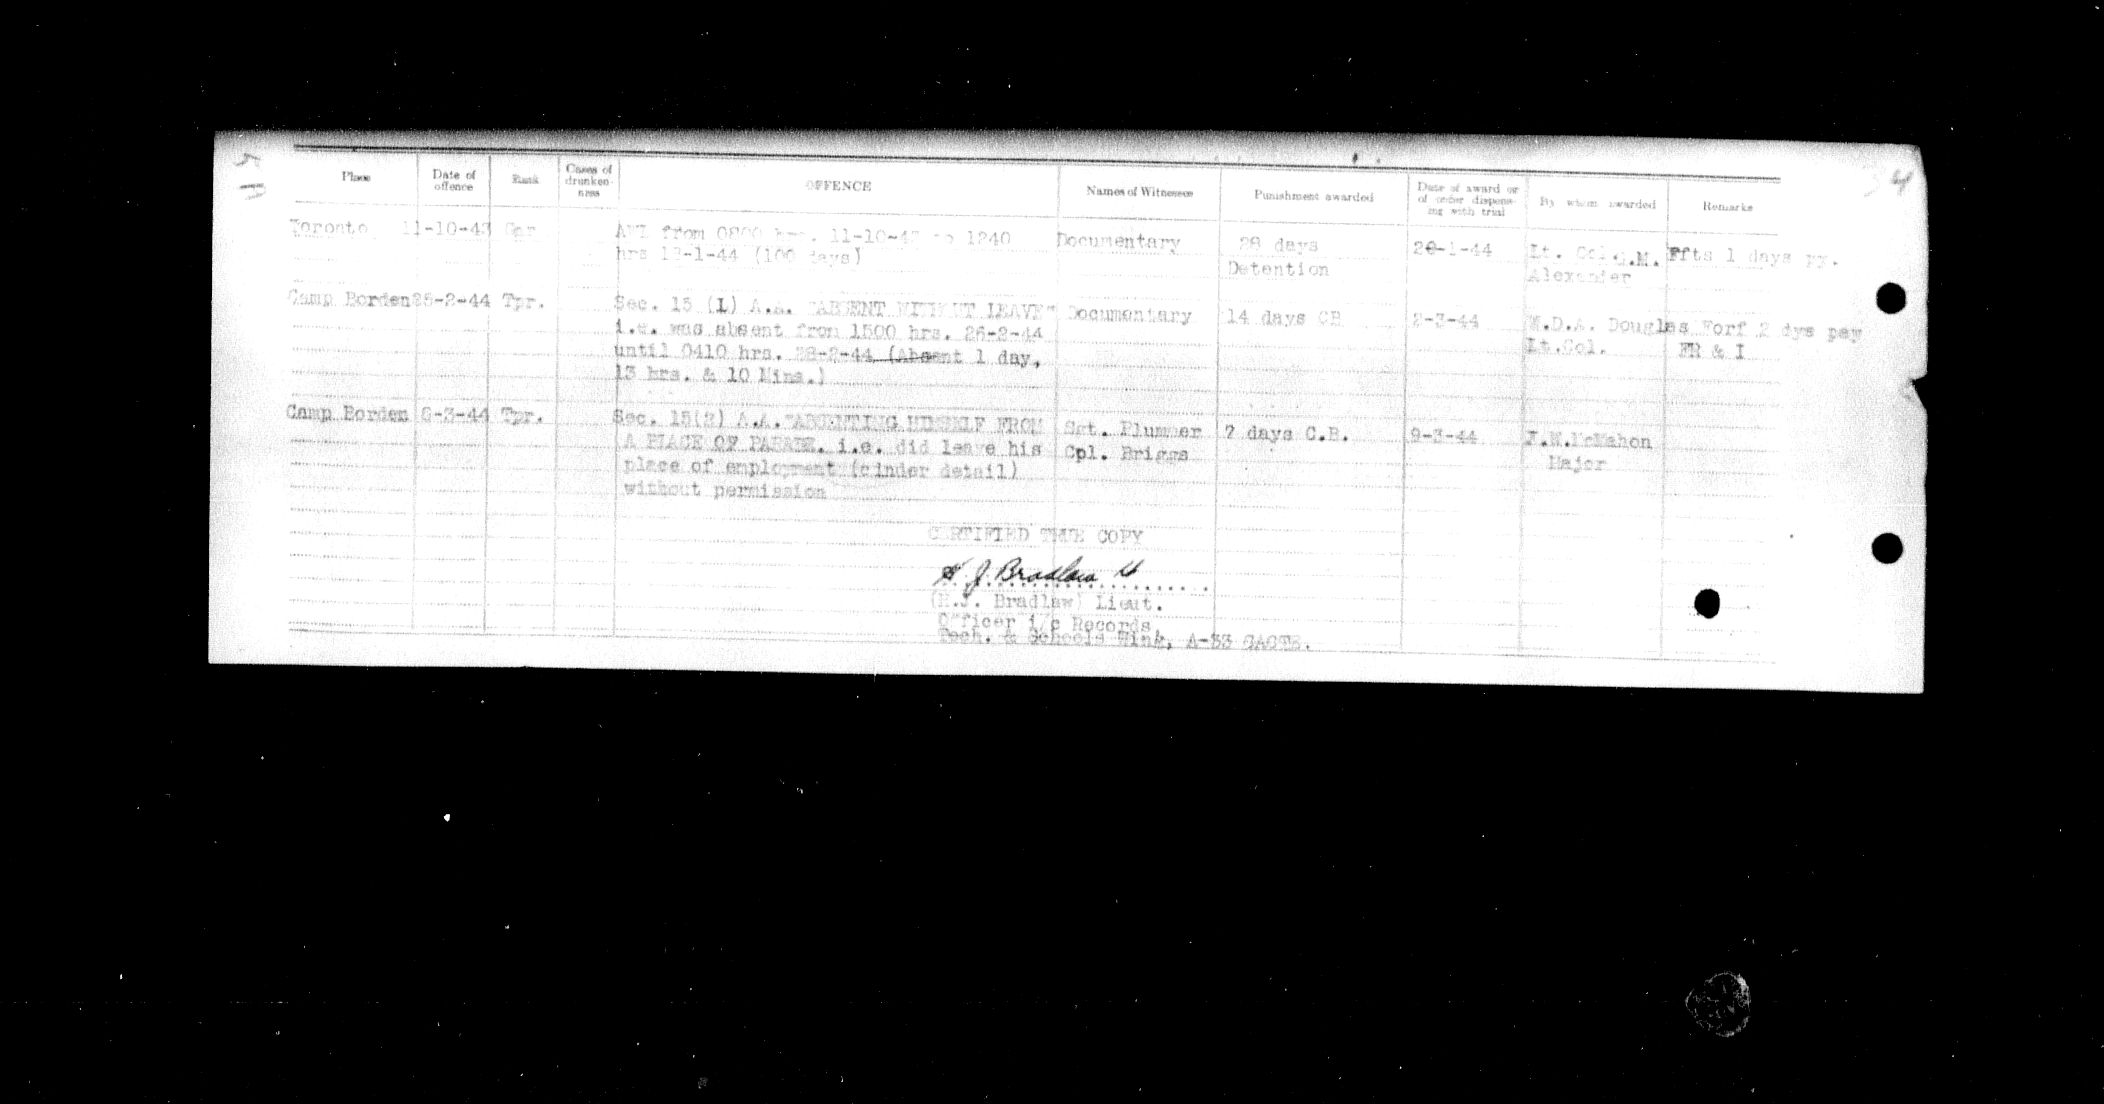 Place
Date of offence
Rank
Cases of drunken-ness
OFFENCE
Names of Witnesses
Punishment awarded
Date of award or of order dispens-ing with trial
By whom awarded
Remarks
4
Toronto 11-10-43 from 0800 11-10-43 1240 Documentary 28 days 20-1-44 Lt. Col. G.M. Ffts 1 days py.
hrs -1-44 (100 days) Detention Alexander
Camp Borden 26-2-44 Tpr. Sec. 15 (1) A.A. "ABSENT WITHOUT LEAVE" Documentary 14 days CB 2-3-44 M.D.A. Douglas Forf 2 dys pay
i.e. was absent from 1500 hrs. 26-2-44 Lt.Col. FR & I
until 0410 hrs. 28-2-44 (Absent 1 day,
13 hrs. & 10 Mins.)
Camp Borden -3-44 Tpr. Sec. 15(2) A.A. "ABSENTING HIMSELF FROM Sgt. Plummer 7 days C.B. 9-3-44 McMahon
A PLACE OF PARADE. i.e. did leave his Cpl. Briggs Major
place of employment (cinder detail)
without permission
CERTIFIED TRUE COPY
H J. Bradlaw Lt
(H.J. Bradlaw) Lieut.
Officer i/c Records
Tech. & Schools Wing, A-33 CACTE.